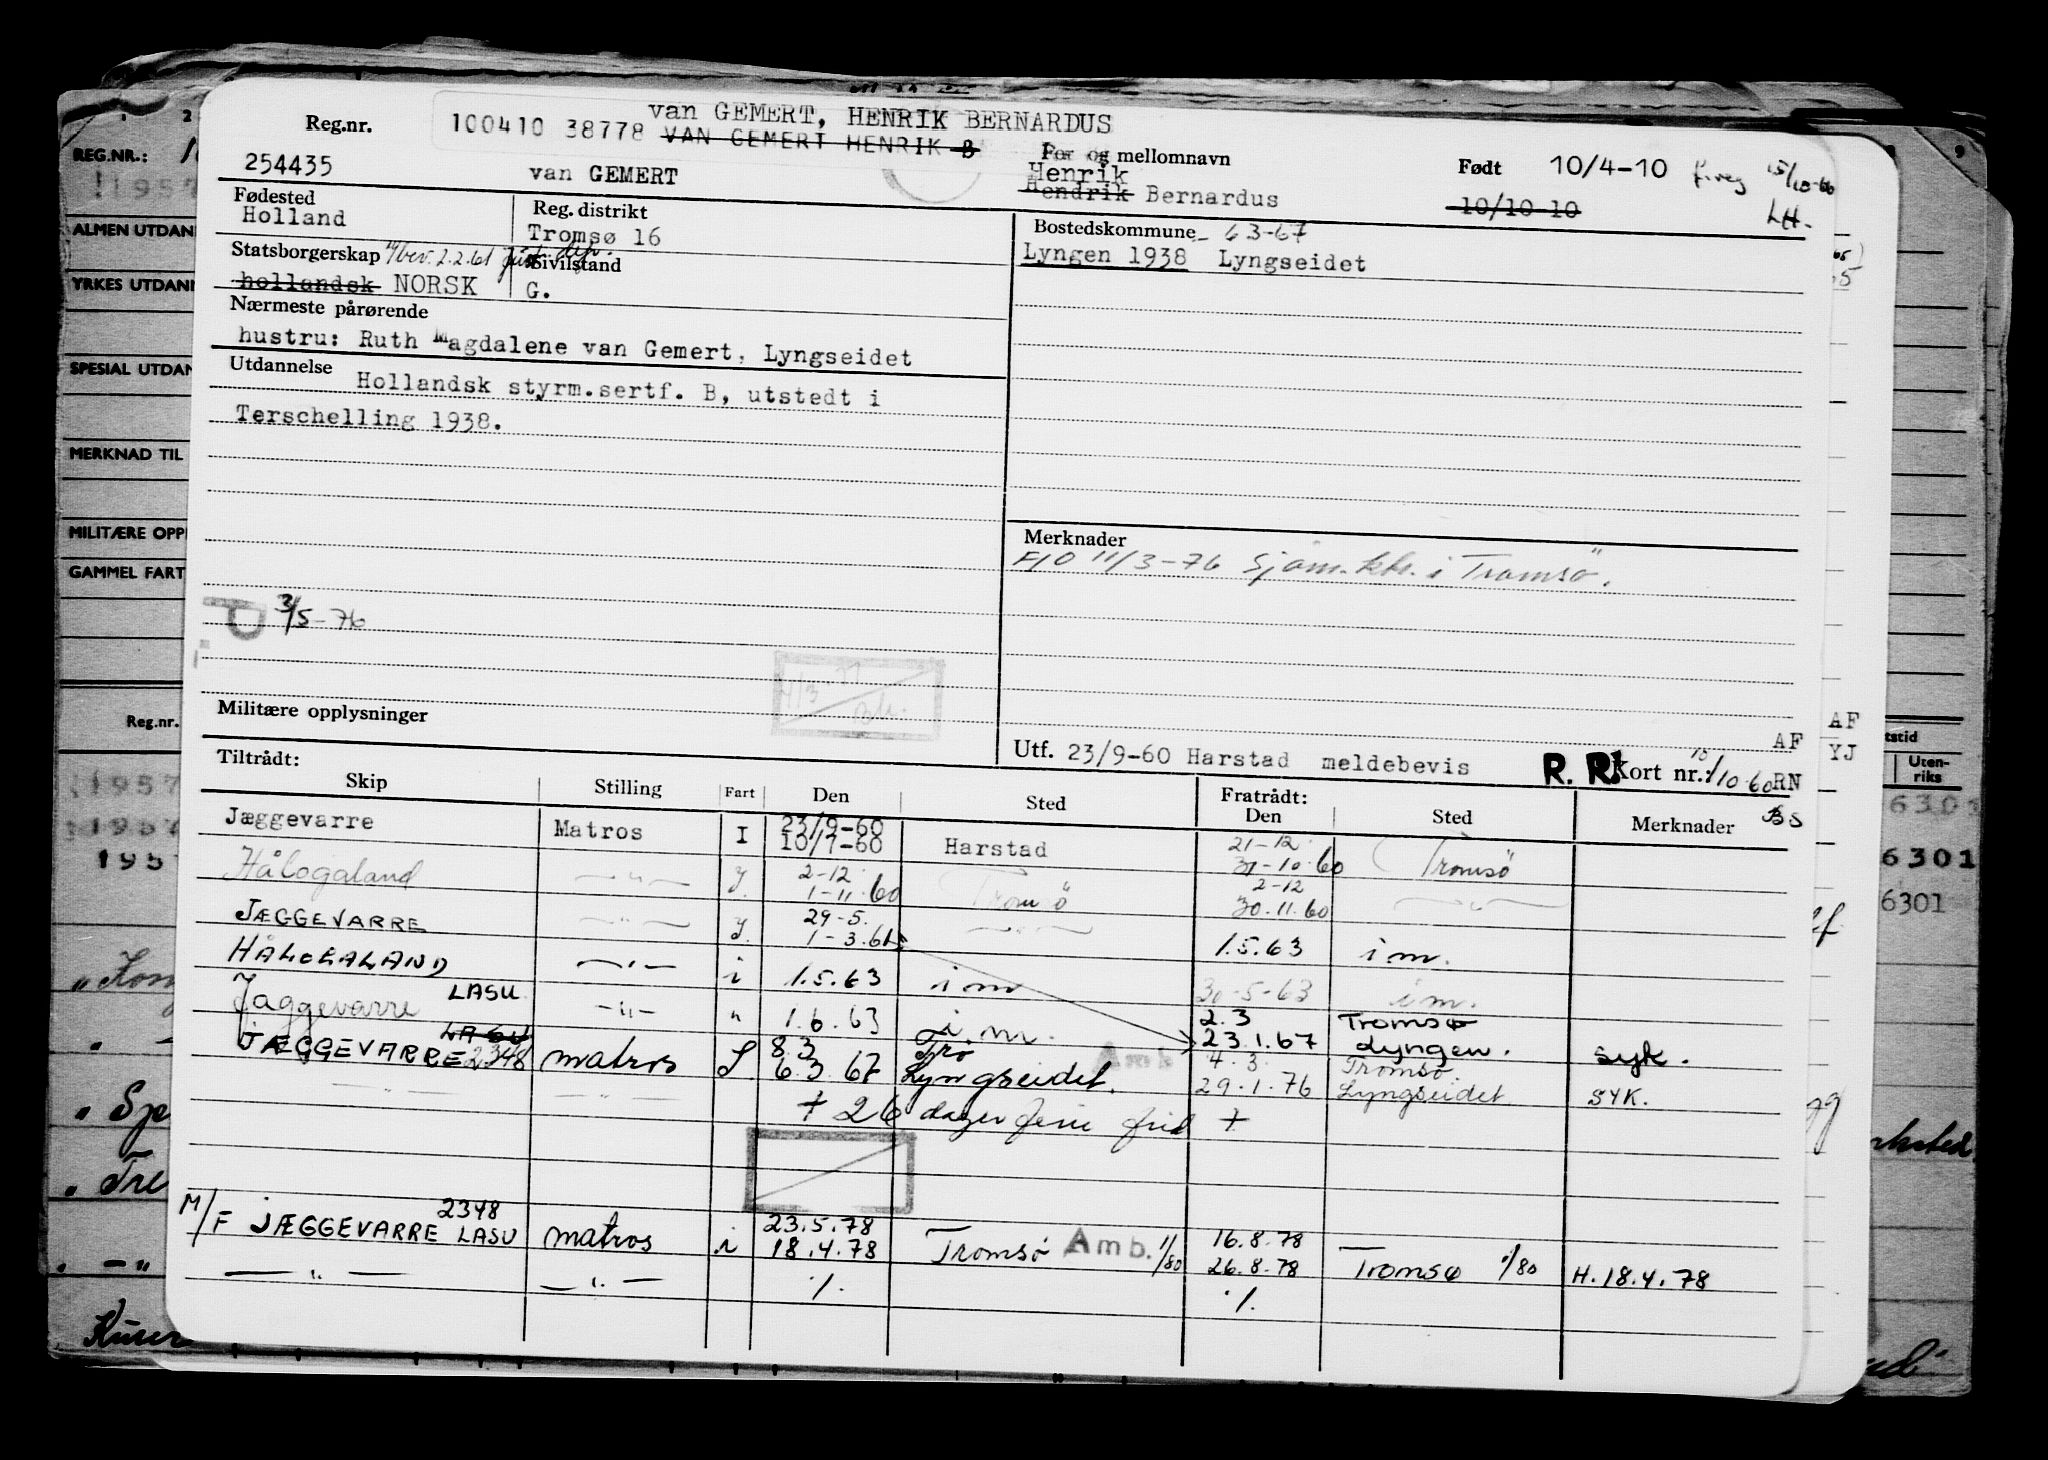 van GEMERT, HENRIK BERNARDUS
Reg.nr. 100410 38778 VAN GEMERT HENRIK B
254435 van GEMERT
For og mellomnavn
Henrik
Hendrik Bernardus
Født 10/4-10
10/10-10
LH.
Fødested
Holland
Reg. distrikt
Tromsø 16
Bostedskommune - 63-67
Lyngen 1938 Lyngseidet
Statsborgerskap
hollandsk NORSK
Sivilstand
G.
Nærmeste pårørende
hustru: Ruth Magdalene van Gemert, Lyngseidet
Utdannelse
Hollandsk styrm.sertf. B, utstedt i
Terschelling 1938.
Merknader
11/3-76 Sjøm.ktr. i Tromsø.
3/5-76
Militære opplysninger
Utf. 23/9-60 Harstad meldebevis
R. R. Kort nr.: 1
15/10-60
AF
RN
BS
Tiltrådt:
Skip Stilling Fart Den Sted Fratrådt: Den Sted Merknader
Jæggevarre Matros I 23/9-60 10/7-60 Harstad 21-12 31-10-60 Tromsø
Hålogaland —"— 2-12 1-11-60 Tromsø 2-12 30.11.60 —"—
JÆGGEVARRE —"— 29-5. 1-3.61 —"— 1.5.63 i m.
HÅLOGALAND —"— i 1.5.63 i m 30-5-63 i m.
Jæggevarre LASU —"— " 1.6.63 i m. 2.3 23.1.67 Tromsø Lyngen. syk.
JÆGGEVARRE LASU 2348 matros 8.3 6.3.67 Trø Lyngseidet. Amb 4.3. 29.1.76 Tromsø Lyngseidet SYK.
+ 26 dager ferie frid +
M/F JÆGGEVARRE 2348 LASU matros i 23.5.78 18.4.78 Tromsø Amb. 1/80 16.8.78 26.8.78 Tromsø 1/80 H.18.4.78
—"— —"— ./. ./.
REG.NR.:
ALMEN UTDAN
YRKES UTDANN
SPESIAL UTDAN
MERKNAD TIL
MILITÆRE OPPL
GAMMEL FART
Reg.nr.
1957
1957
AF
YJ
Uten-
riks
6301
6301
6301